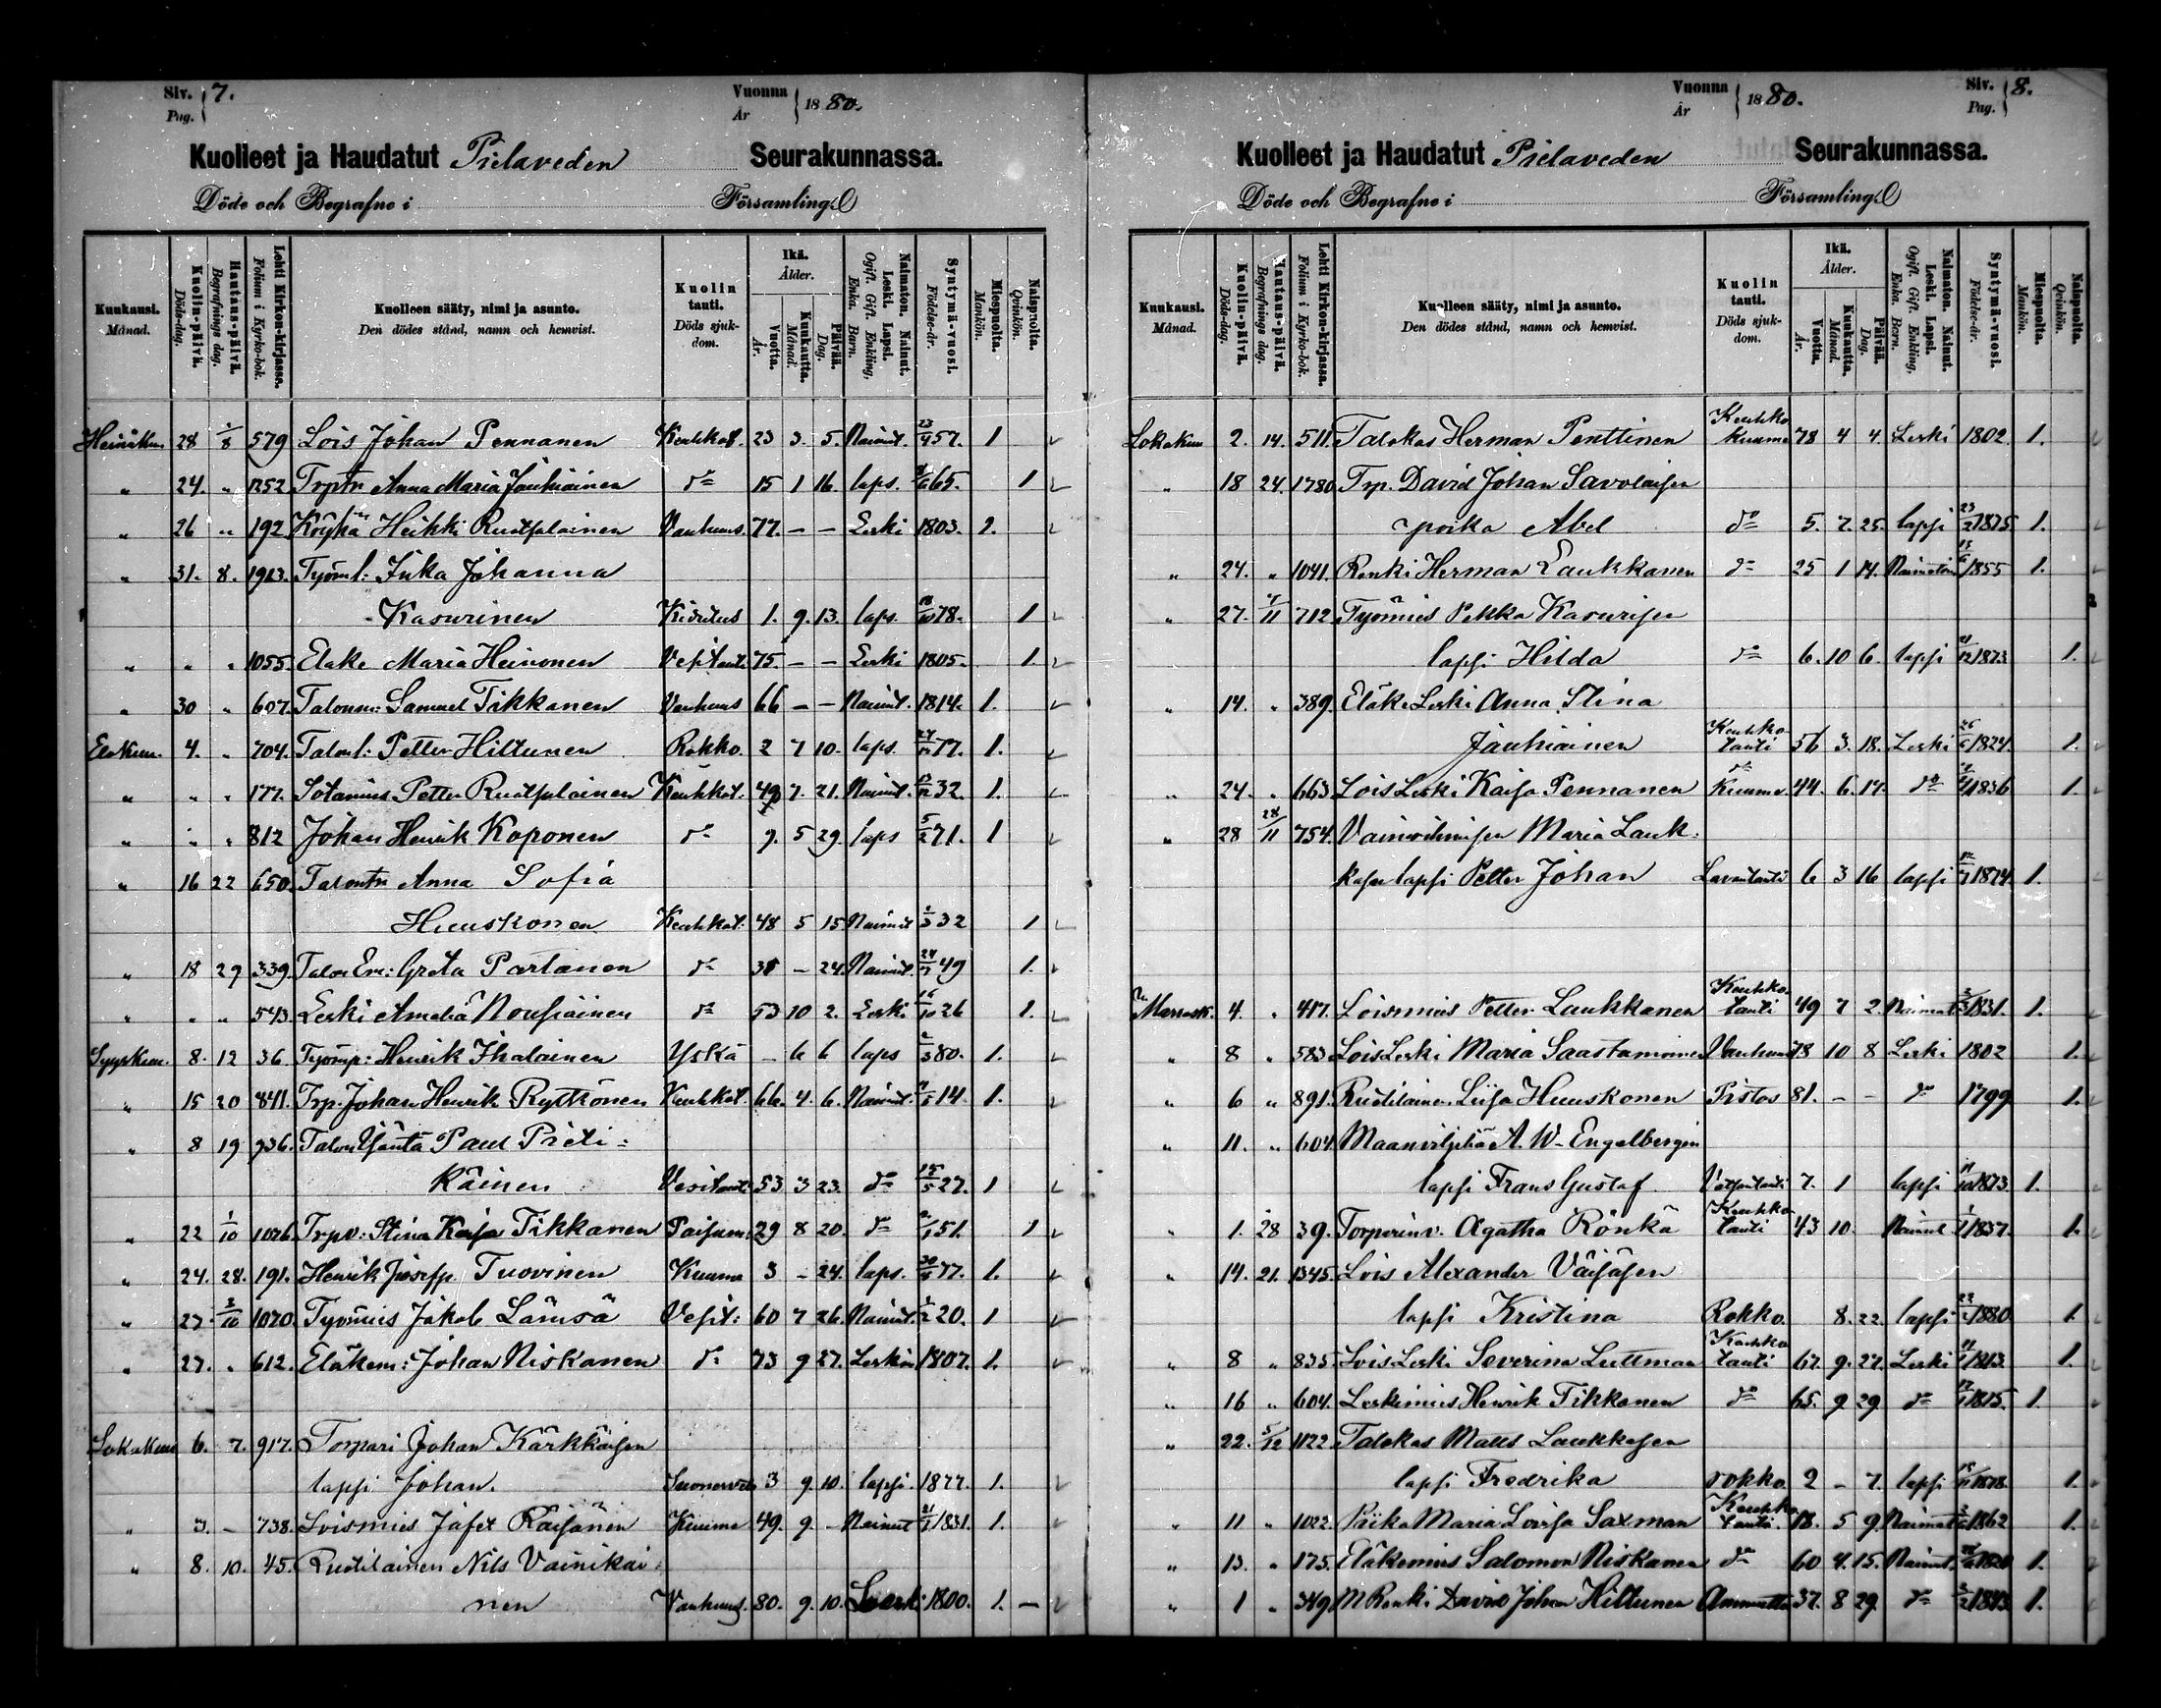 Siv. Pag. 7. Vuonna År 1880.
Kuolleet ja Haudatut Pielaveden Seurakunnassa.
Döde och Begrafne i Församling
Kuukausi. Månad. Kuolin-päivä. Döds-dag. Hautaus-päivä. Begrafnings dag. Lehti Kirkon-kirjassa. Folium i Kyrko-bok. Kuolleen sääty, nimi ja asunto. Den dödes stånd, namn och hemvist. Kuolin tauti. Döds sjukdom. Ikä. Ålder. Vuotta. År. Kuukautta. Månad. Päivää. Dag. Naimaton. Nainut. Leski. Lapsi. Ogift. Gift. Enkling, Enka. Barn. Syntymä-vuosi. Födelse-år. Miespuolta. Mankön. Naispuolta. Qvinkön.
Heinäku. 28 1/8 579 Lois Johan Pennanen Keuhkot. 23 3. 5. Nainut. 23/4 57. 1
" 24. " 1252 Trptr Anna Maria Jauhiainen do 15 1 16. laps. 65. 1
" 26 " 192 Köyhä Heikki Ruotsalainen Vanhuus. 77. — — Leski 1803. 1.
" 31. 8. 1913. Työml: Inka Johanna
Kasurinen Kivutus 1. 9. 13. laps. 18/10 78. 1
" " " 1055. Eläke Maria Heinonen Vesitaut. 75. — — Leski 1805. 1.
" 30 " 607. Talonm: Samuel Tikkanen Vanhuus 66 — — Nainut. 1814. 1.
Elokuu. 4. " 704. Talonl: Petter Hiltunen Rokko. 2 7 10. laps. 24/12 77. 1.
" " " 177. Sotamies Petter Ruotsalainen Keuhkot. 49 7. 21. Nainut. 13/12 32. 1.
" " " 812 Johan Henrik Koponen do 9. 5 29. laps 5/2 71. 1
" 16 22 650. Talontr Anna Sofia
Huuskonen Keuhkot: 48 5 15 Nainut 1/3 32 1
" 18 29 339. Talon Em: Greta Partanen do 31 — 24. Nainut. 24/7 49 1.
" " " 543. Leski Amalia Nousiainen do 53 10 2. Leski 16/10 26 1.
Syyskuu. 8. 12 36. Työmp: Henrik Ihalainen Yskä — 6 6 laps 2/3 80. 1.
" 15 20 841. Trp. Johan Henrik Rytkönen Keuhkot. 66. 4. 6. Nainut. 14. 1.
" 8 19 936. Talon Isäntä Paul Pieti=
käinen Vesitaut. 53 3 23. do 15/5 27. 1
" 22 1/10 1026 Trpv: Stina Kaisa Tikkanen Paisum: 29 8 20. do 2/1 51. 1
" 24. 28. 191. Henrik Josefsp. Tuovinen Kuume 3 — 24. laps. 77. 1.
" 27. 3/10 1070. Työmies Jakob Lämsä Vesit: 60 7 26. Nainut. 1/2 20. 1
" 27. " 612. Eläkem: Johan Niskanen do 73 9 27. Leskim 1807. 1.
Lokakuu 6. 7. 917. Torpari Johan Kärkkäisen
lapsi Johan. 3 9. 10. lapsi. 1877. 1.
" 3. — 738. Loismies Jafet Räisänen Kuume 49. 9. — Nainut 21/1 1831. 1.
" 8. 10. 45. Ruotilainen Nils Vainikai
nen Vanhuus. 80. 9. 10. Leski 1800. 1. —
Vuonna År 1880. Siv. Pag. 8.
Kuolleet ja Haudatut Pielaveden Seurakunnassa.
Döde och Begrafne i Församling
Kuukausi. Månad. Kuolin-päivä. Döds-dag. Hautaus-päivä. Begrafnings dag. Lehti Kirkon-kirjassa. Folium i Kyrko-bok. Kuolleen sääty, nimi ja asunto. Den dödes stånd, namn och hemvist. Kuolin tauti. Döds sjukdom. Ikä. Ålder. Vuotta. År. Kuukautta. Månad. Päivää. Dag. Naimaton. Nainut. Leski. Lapsi. Ogift. Gift. Enkling, Enka. Barn. Syntymä-vuosi. Födelse-år. Miespuolta. Mankön. Naispuolta. Qvinkön.
Lokakuu 2. 14. 511. Talokas Herman Penttinen Keuhko kuume 78 4 4. Leski 1802. 1.
" 18 24. 1780. Trp. David Johan Savolaisen
poika Abel do 5. 7. 25. lapsi 23/2 1875. 1.
" 24. " 1041. Renki Herman Laukkanen do 25 1 14. Naimaton 1855 1.
" 27. 7/11 712. Työmies Pekka Kasurisen
lapsi Hilda do 6. 10 6. lapsi 21/12 1873 1.
" 14. " 389. Eläke Leski Anna Stina
Jauhiainen Keuhko tauti 56 3. 18. Leski 26/6 1824. 1.
" 24. " 663. Lois Leski Kaisa Pennanen do Kuume 44. 6. 17. do 1836 1.
" 28 28/11 754. Vainodimisen Maria Lauk:
kasen lapsi Petter Johan Lavantauti 6 3 16 lapsi 12/7 1874. 1.
Marrask. 4. " 417. Loismies Petter Laukkanen Keuhko tauti 49 7 2. Nainut 1831. 1.
" 8 " 583. Lois Leski Maria Saastamoinen Vanhuus 78 10 8 Leski 1802 1.
" 6 " 891. Ruotilainen Liisa Huuskonen Pistos 81. — — do 1799 1.
" 11. " 604. Maanviljeliä A. W. Engelbergin
lapsi Frans Gustaf 7. 1 lapsi 1873. 1.
" 1. 28 39. Torparinv. Agatha Rönkä Keuhko tauti 43 10. Nainut 1/1 1837. 1.
" 14. 21. 1345. Lois Alexander Väisäsen
lapsi Kristina Rokko. 8. 22. lapsi 1880. 1.
" 8 " 835. Lois Leski Severina Luttman Keuhko tauti 67. 9. 27. Leski 1813. 1.
" 16 " 604. Leskimies Henrik Tikkanen do 65. 9 29 do 17/1 1815. 1.
" 22. 5/12 1122. Talokas Matts Laukkasen
lapsi Fredrika rokko. 2 — 7. lapsi 15/11 1878. 1.
" 11 " 1022. Piika Maria Lovisa Saxman Keuhko tauti. 18. 5 9. 1862 1.
" 13. " 175. Eläkemies Salomon Niskanen do 60 4. 15. Nainut. 1820 1.
" 1 " 349. M Renki David Johan Hiltunen Ammuttu 37. 8 29. do 3/2 1843. 1.